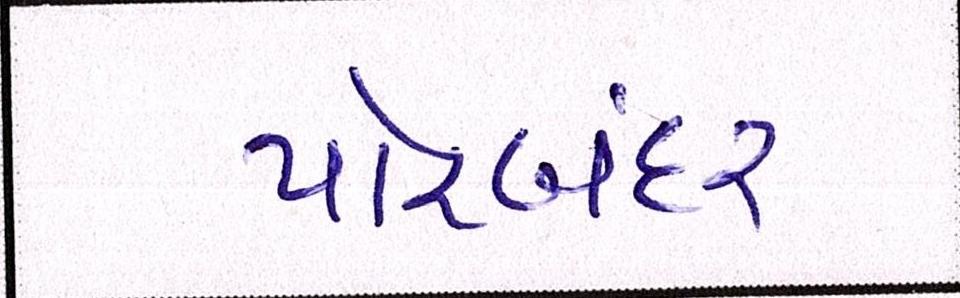 પોરબંદર